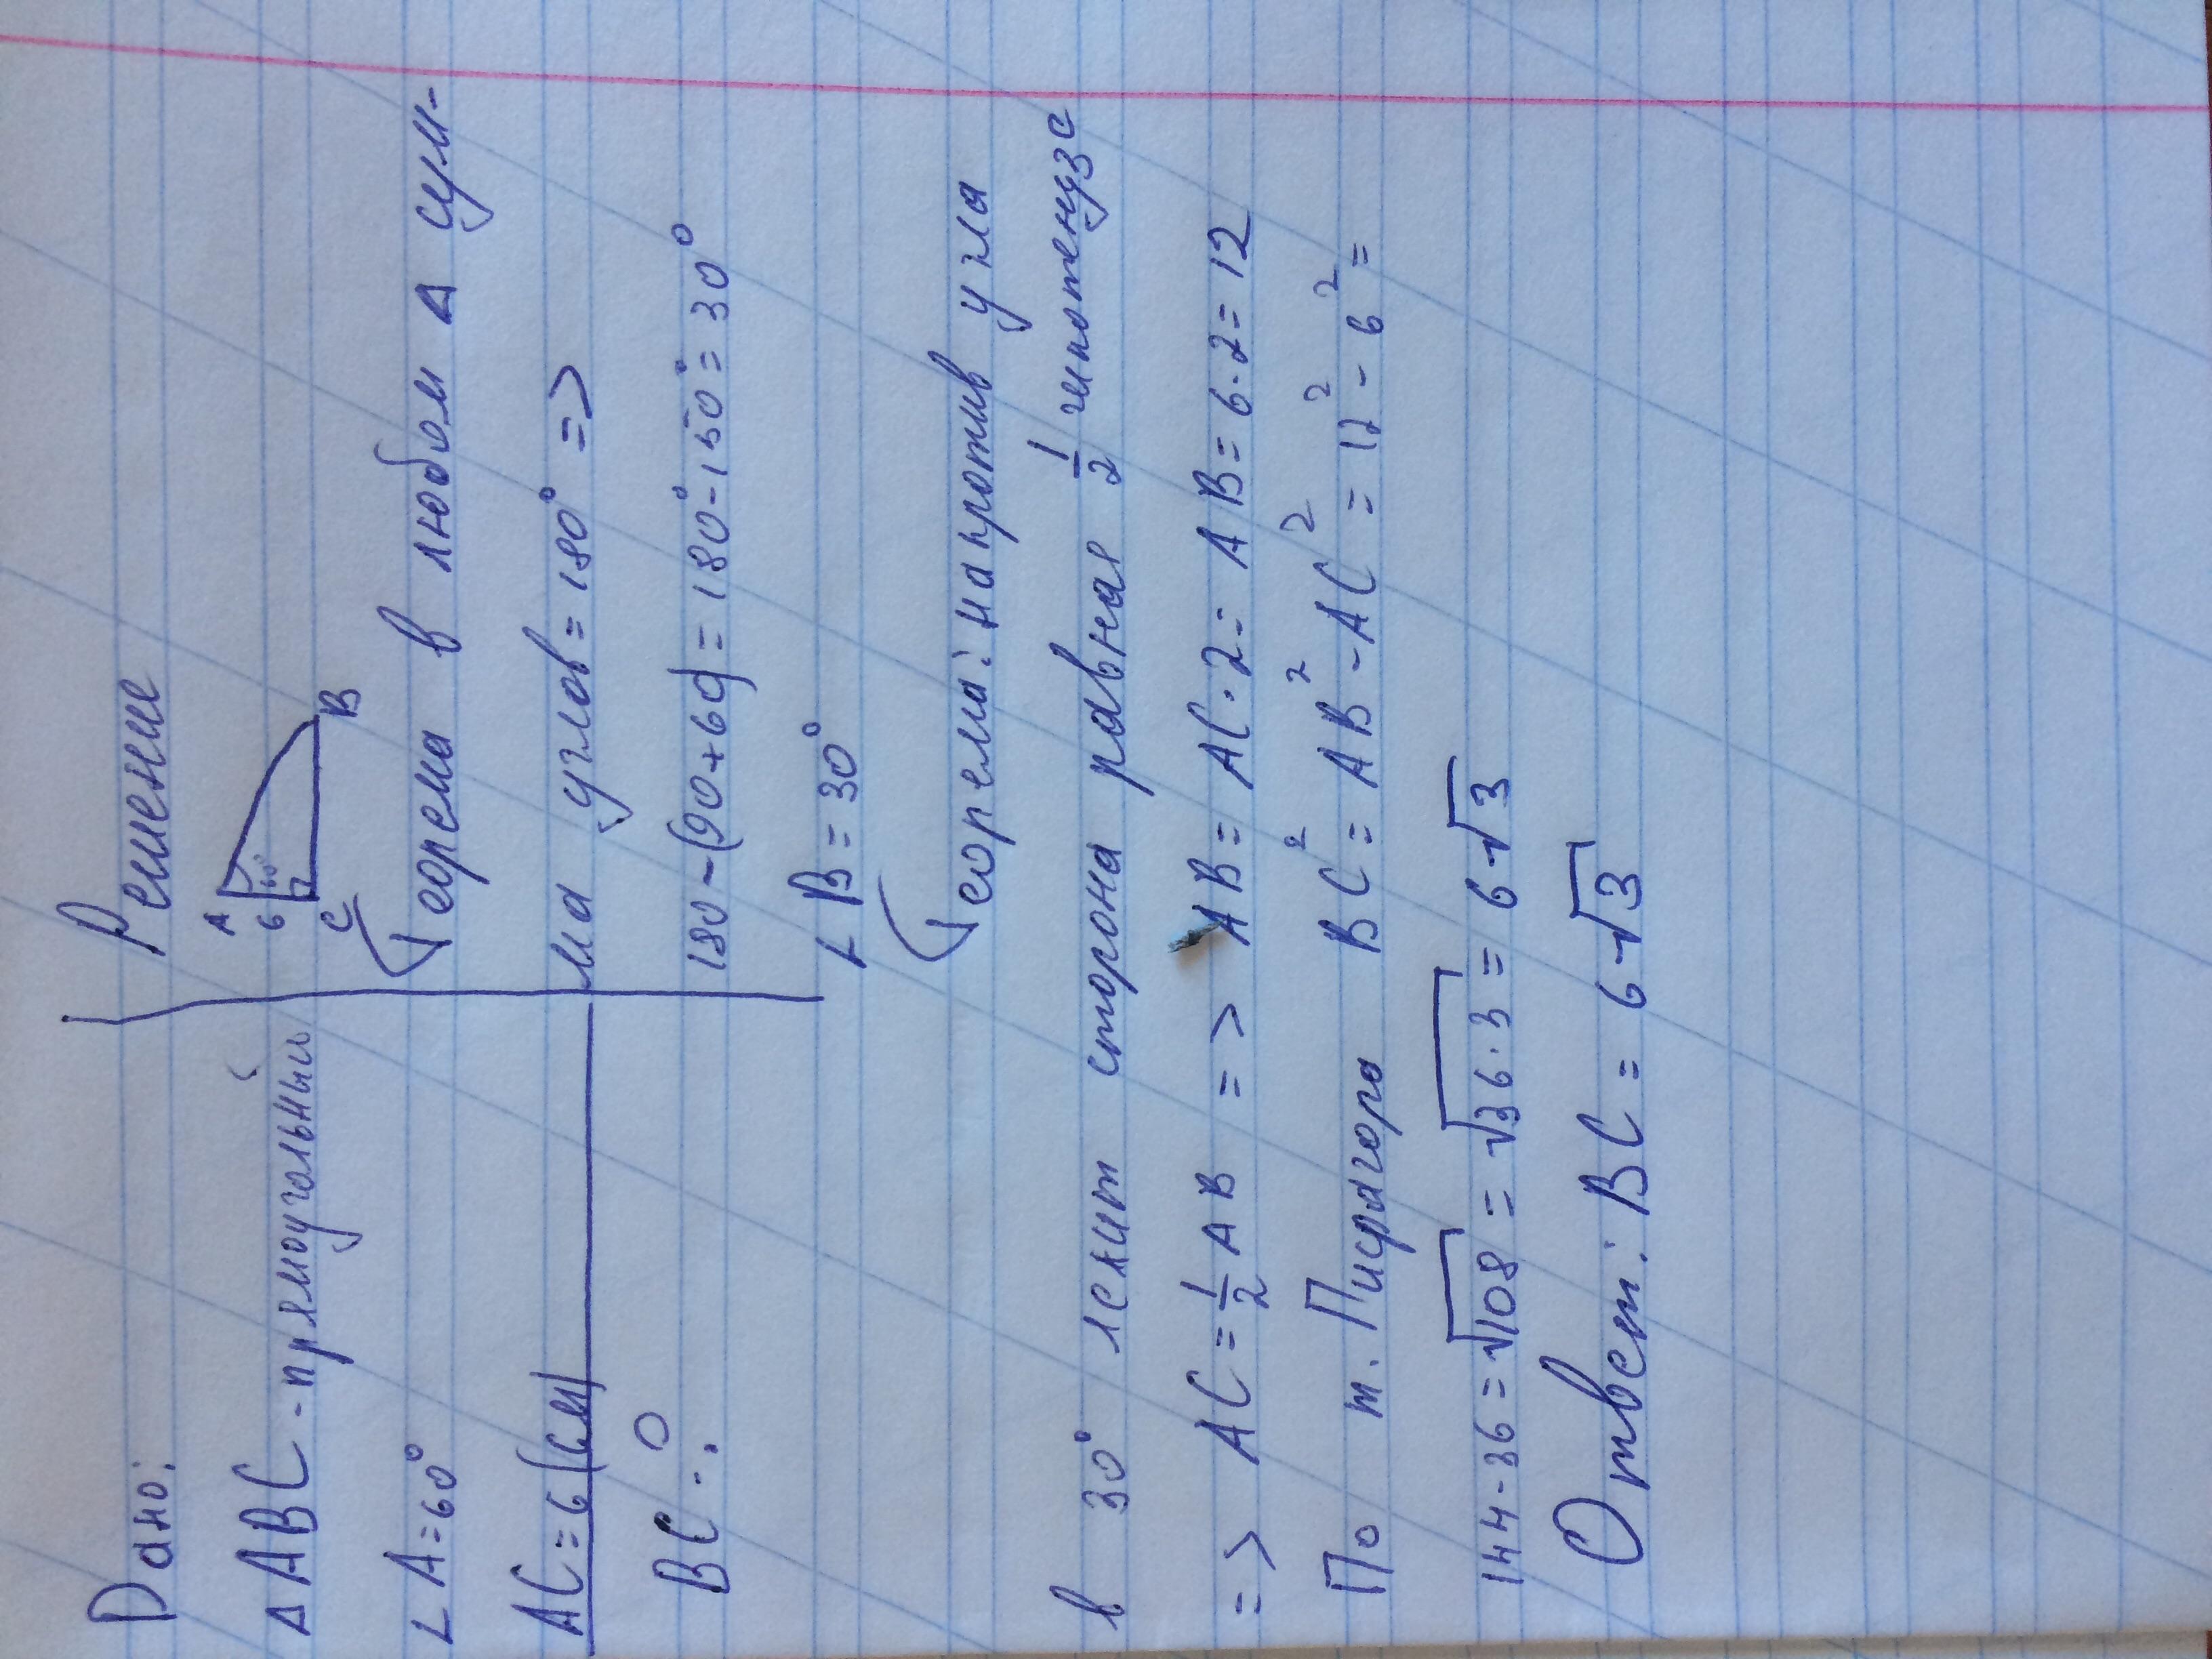 Дано:
Δ ABC - прямоугольный
∟A=60°
AC=6(см)
BC-?
Решение
A
6
60°
C
B
Теорема в любом Δ сум-
ма углов=180° =>
180-(90+60)=180°-150°=30°
∟B=30°
Теорема: напротив угла
в 30° лежит сторона равная 1/2 гипотенузе
=> AC=1/2 AB => AB=AC·2= AB=6·2=12
По т. Пифагора BC²=AB²-AC²=12²-6²=
144-36=√108=√36·3=6√3
Ответ: BC=6√3